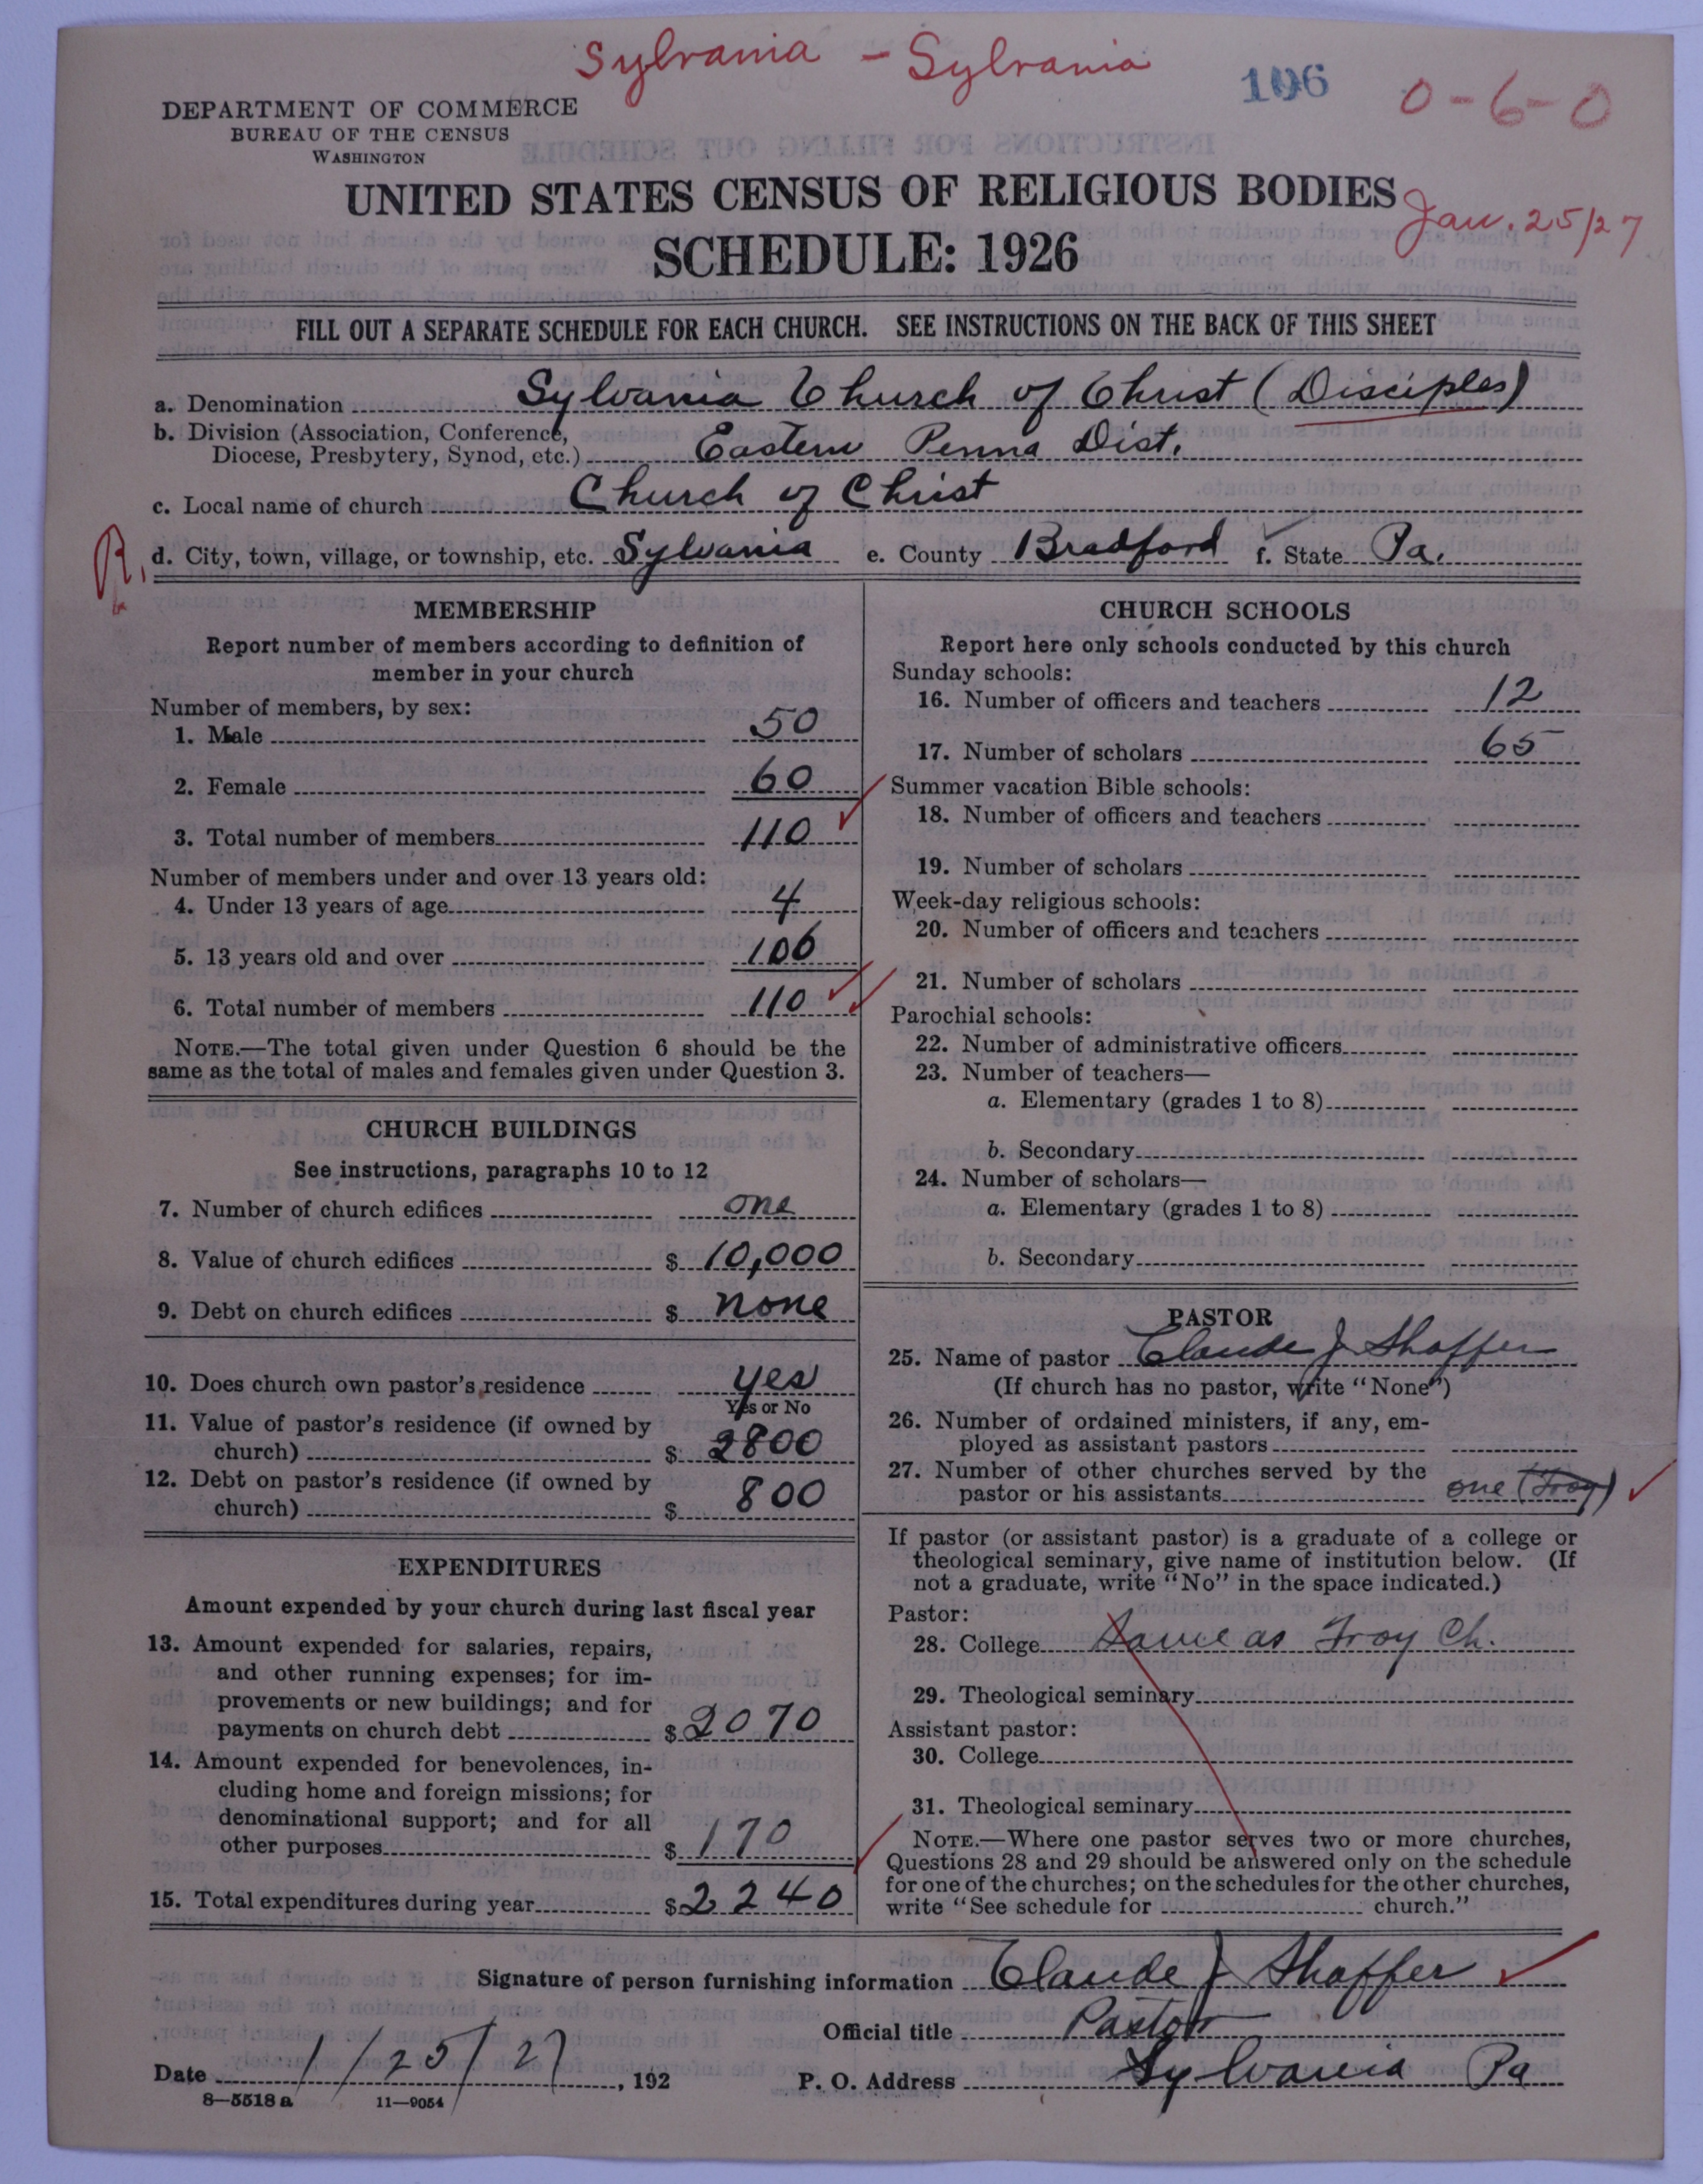 Sylvania - Sylvania
106
0-6-0
DEPARTMENT OF COMMERCE
BUREAU OF THE CENSUS
WASHINGTON
UNITED STATES CENSUS OF RELIGIOUS BODIES
Jan. 25/27
SCHEDULE: 1926
FILL OUT A SEPARATE SCHEDULE FOR EACH CHURCH. SEE INSTRUCTIONS ON THE BACK OF THIS SHEET
a. Denomination Sylvania Church of Christ (Disciples)
b. Division (Association, Conference,
Diocese, Presbytery, Synod, etc.) Eastern Penna Dist.
c. Local name of church Church of Christ
R,
d. City, town, village, or township, etc. Sylvania e. County Bradford f. State Pa.
MEMBERSHIP
Report number of members according to definition of
member in your church
Number of members, by sex:
1. Male 50
2. Female 60
3. Total number of members 110
Number of members under and over 13 years old:
4. Under 13 years of age 4
5. 13 years old and over 106
6. Total number of members 110
NOTE.—The total given under Question 6 should be the
same as the total of males and females given under Question 3.
CHURCH BUILDINGS
See instructions, paragraphs 10 to 12
7. Number of church edifices one
8. Value of church edifices $ 10,000
9. Debt on church edifices $ none
10. Does church own pastor's residence yes
Yes or No
11. Value of pastor's residence (if owned by
church) $ 2800
12. Debt on pastor's residence (if owned by
church) $ 800
EXPENDITURES
Amount expended by your church during last fiscal year
13. Amount expended for salaries, repairs,
and other running expenses; for im-
provements or new buildings; and for
payments on church debt $ 2070
14. Amount expended for benevolences, in-
cluding home and foreign missions; for
denominational support; and for all
other purposes $ 170
15. Total expenditures during year $ 2240
CHURCH SCHOOLS
Report here only schools conducted by this church
Sunday schools:
16. Number of officers and teachers 12
17. Number of scholars 65
Summer vacation Bible schools:
18. Number of officers and teachers
19. Number of scholars
Week-day religious schools:
20. Number of officers and teachers
21. Number of scholars
Parochial schools:
22. Number of administrative officers
23. Number of teachers—
a. Elementary (grades 1 to 8)
b. Secondary
24. Number of scholars—
a. Elementary (grades 1 to 8)
b. Secondary
PASTOR
25. Name of pastor Claude J Shaffer
(If church has no pastor, write "None")
26. Number of ordained ministers, if any, em-
ployed as assistant pastors
27. Number of other churches served by the
pastor or his assistants one (Troy)
If pastor (or assistant pastor) is a graduate of a college or
theological seminary, give name of institution below. (If
not a graduate, write "No" in the space indicated.)
Pastor:
28. College Same as Troy Ch.
29. Theological seminary
Assistant pastor:
30. College
31. Theological seminary
NOTE.—Where one pastor serves two or more churches,
Questions 28 and 29 should be answered only on the schedule
for one of the churches; on the schedules for the other churches,
write "See schedule for church."
Signature of person furnishing information Claude J Shaffer
Official title Pastor
Date 1/25/27, 192 P. O. Address Sylvania Pa
8—5518 a 11—9054